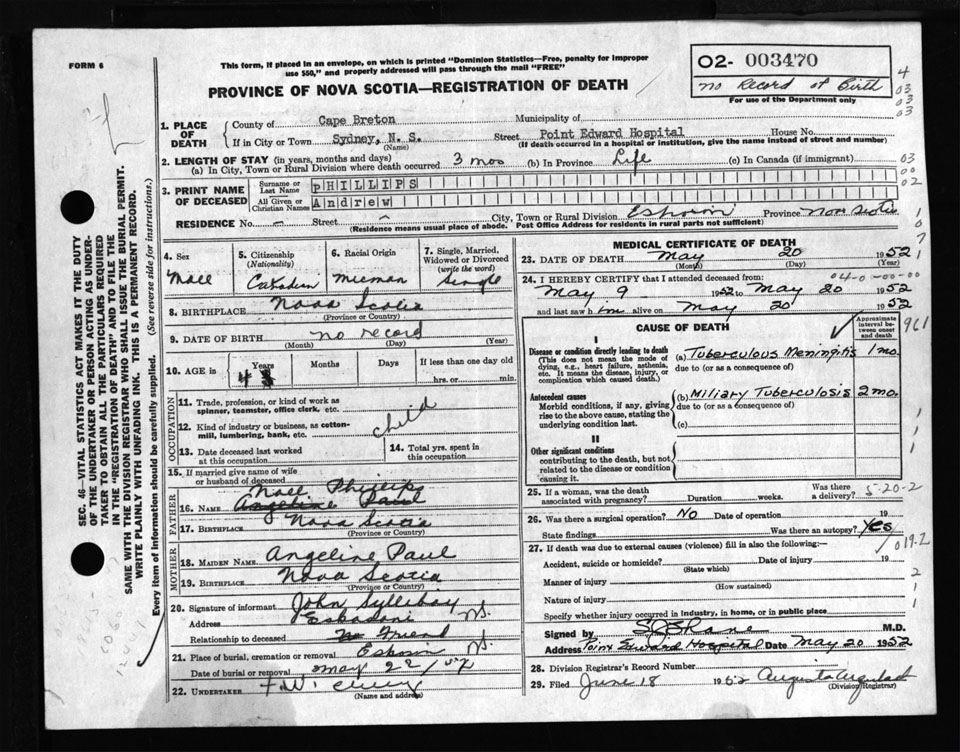 FORM 6
This form, if placed in an envelope, on which is printed "Dominion Statistics—Free, penalty for improper
use $50," and properly addressed will pass through the mail "FREE"
02- 003470
no Record of Birth
For use of the Department only
PROVINCE OF NOVA SCOTIA—REGISTRATION OF DEATH
4
03
03
03
1. PLACE OF DEATH County of Cape Breton Municipality of
If in City or Town Sydney, N. S. Street Point Edward Hospital House No.
(Name) (If death occurred in a hospital or institution, give the name instead of street and number)
2. LENGTH OF STAY (in years, months and days)
(a) In City, Town or Rural Division where death occurred 3 mos (b) In Province Life (c) In Canada (if immigrant)
03
00
02
3. PRINT NAME OF DECEASED Surname or Last Name PHILLIPS
All Given or Christian Names Andrew
RESIDENCE No. — Street City, Town or Rural Division Province Nova Scotia
(Residence means usual place of abode. Post Office Address for residents in rural parts not sufficient)
SEC. 46—VITAL STATISTICS ACT MAKES IT THE DUTY
OF THE UNDERTAKER OR PERSON ACTING AS UNDER-
TAKER TO OBTAIN ALL THE PARTICULARS REQUIRED
IN THE "REGISTRATION OF DEATH" AND TO FILE THE
SAME WITH THE DIVISION REGISTRAR WHO SHALL ISSUE THE BURIAL PERMIT.
WRITE PLAINLY WITH UNFADING INK. THIS IS A PERMANENT RECORD.
Every item of information should be carefully supplied. (See reverse side for instructions.)
4. Sex
Male
5. Citizenship
(Nationality)
Canadian
6. Racial Origin
7. Single, Married,
Widowed or Divorced
(write the word)
Single
8. BIRTHPLACE Nova Scotia
(Province or Country)
9. DATE OF BIRTH no record
(Month) (Day) (Year)
10. AGE in Years Months Days If less than one day old
4 hrs. or min.
OCCUPATION
11. Trade, profession, or kind of work as
spinner, teamster, office clerk, etc.
12. Kind of industry or business, as cotton-
mill, lumbering, bank, etc. child
13. Date deceased last worked
at this occupation
14. Total yrs. spent in
this occupation
15. If married give name of wife
or husband of deceased
FATHER
Noel Phillips
16. NAME Angeline Paul
17. BIRTHPLACE Nova Scotia
(Province or Country)
MOTHER
18. MAIDEN NAME Angeline Paul
19. BIRTHPLACE Nova Scotia
(Province or Country)
20. Signature of informant John Syllibay
Address Eskasoni N.S.
Relationship to deceased Friend
21. Place of burial, cremation or removal N.S.
Date of burial or removal May 22/52
22. UNDERTAKER
(Name and address)
MEDICAL CERTIFICATE OF DEATH
23. DATE OF DEATH May 20 1952
(Month) (Day) (Year)
24. I HEREBY CERTIFY that I attended deceased from: 04-0-00-00
May 9 1952 to May 20 1952
and last saw him alive on May 20 1952
CAUSE OF DEATH
Approximate
interval be-
tween onset
and death
961
I
Disease or condition directly leading to death
(This does not mean the mode of
dying, e.g., heart failure, asthenia,
etc. It means the disease, injury, or
complication which caused death.)
(a) Tuberculous Meningitis 1 mo.
due to (or as a consequence of)
Antecedent causes
Morbid conditions, if any, giving
rise to the above cause, stating the
underlying condition last.
(b) Miliary Tuberculosis 2 mo.
due to (or as a consequence of)
(c)
II
Other significant conditions
contributing to the death, but not
related to the disease or condition
causing it.
25. If a woman, was the death
associated with pregnancy? Duration weeks. Was there
a delivery?
5-20-2
26. Was there a surgical operation? No Date of operation 19
State findings Was there an autopsy? Yes
019.2
27. If death was due to external causes (violence) fill in also the following:—
Accident, suicide or homicide? Date of injury 19
(State which)
Manner of injury
(How sustained)
Nature of injury
Specify whether injury occurred in industry, in home, or in public place
Signed by M.D.
Address Point Edward Hospital Date May 20 1952
28. Division Registrar's Record Number
29. Filed June 18 1952 Augusta
(Division Registrar)